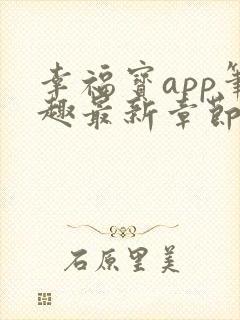 幸福宝app笔
趣最新章节
石原里美